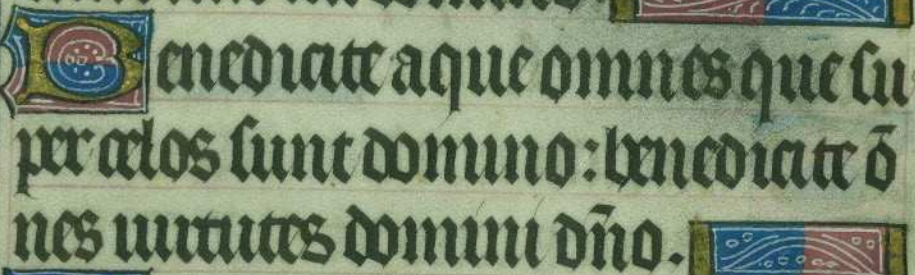 Benedicite aque omnes que su
per celos sunt domino: benedicite ō
nes uirtutes domini dn̄o.